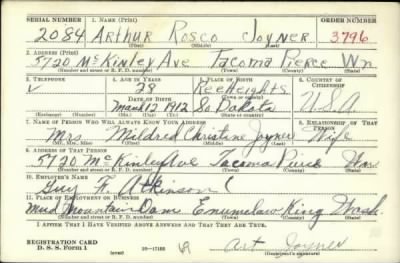 SERIAL NUMBER 1. NAME (Print) ORDER NUMBER
2084 Arthur Rosco Joyner 3796
(First) (Middle) (Last)
2. ADDRESS (Print)
5720 McKinley Ave Tacoma Pierce Wn
(Number and street or R. F. D. number) (Town) (County) (State)
3. TELEPHONE 4. AGE IN YEARS 5. PLACE OF BIRTH 6. COUNTRY OF CITIZENSHIP
28 Ree Heights
DATE OF BIRTH (Town or county)
Mar 17 1912 So Dakota U.S.A.
(Exchange) (Number) (Mo.) (Day) (Yr.) (State or country)
7. NAME OF PERSON WHO WILL ALWAYS KNOW YOUR ADDRESS 8. RELATIONSHIP OF THAT PERSON
Mrs. Mildred Christine Joyner Wife
(Mr., Mrs., Miss) (First) (Middle) (Last)
9. ADDRESS OF THAT PERSON
5720 McKinley Ave Tacoma Pierce Wash
(Number and street or R. F. D. number) (Town) (County) (State)
10. EMPLOYER'S NAME
Guy F. Atkinson C
11. PLACE OF EMPLOYMENT OR BUSINESS
Mud Mountain Dam Enumclaw King Wash.
(Number and street or R. F. D. number) (Town) (County) (State)
I AFFIRM THAT I HAVE VERIFIED ABOVE ANSWERS AND THAT THEY ARE TRUE.
REGISTRATION CARD
D. S. S. Form 1 16—17105 Art Joyner
(over) (Registrant's signature)